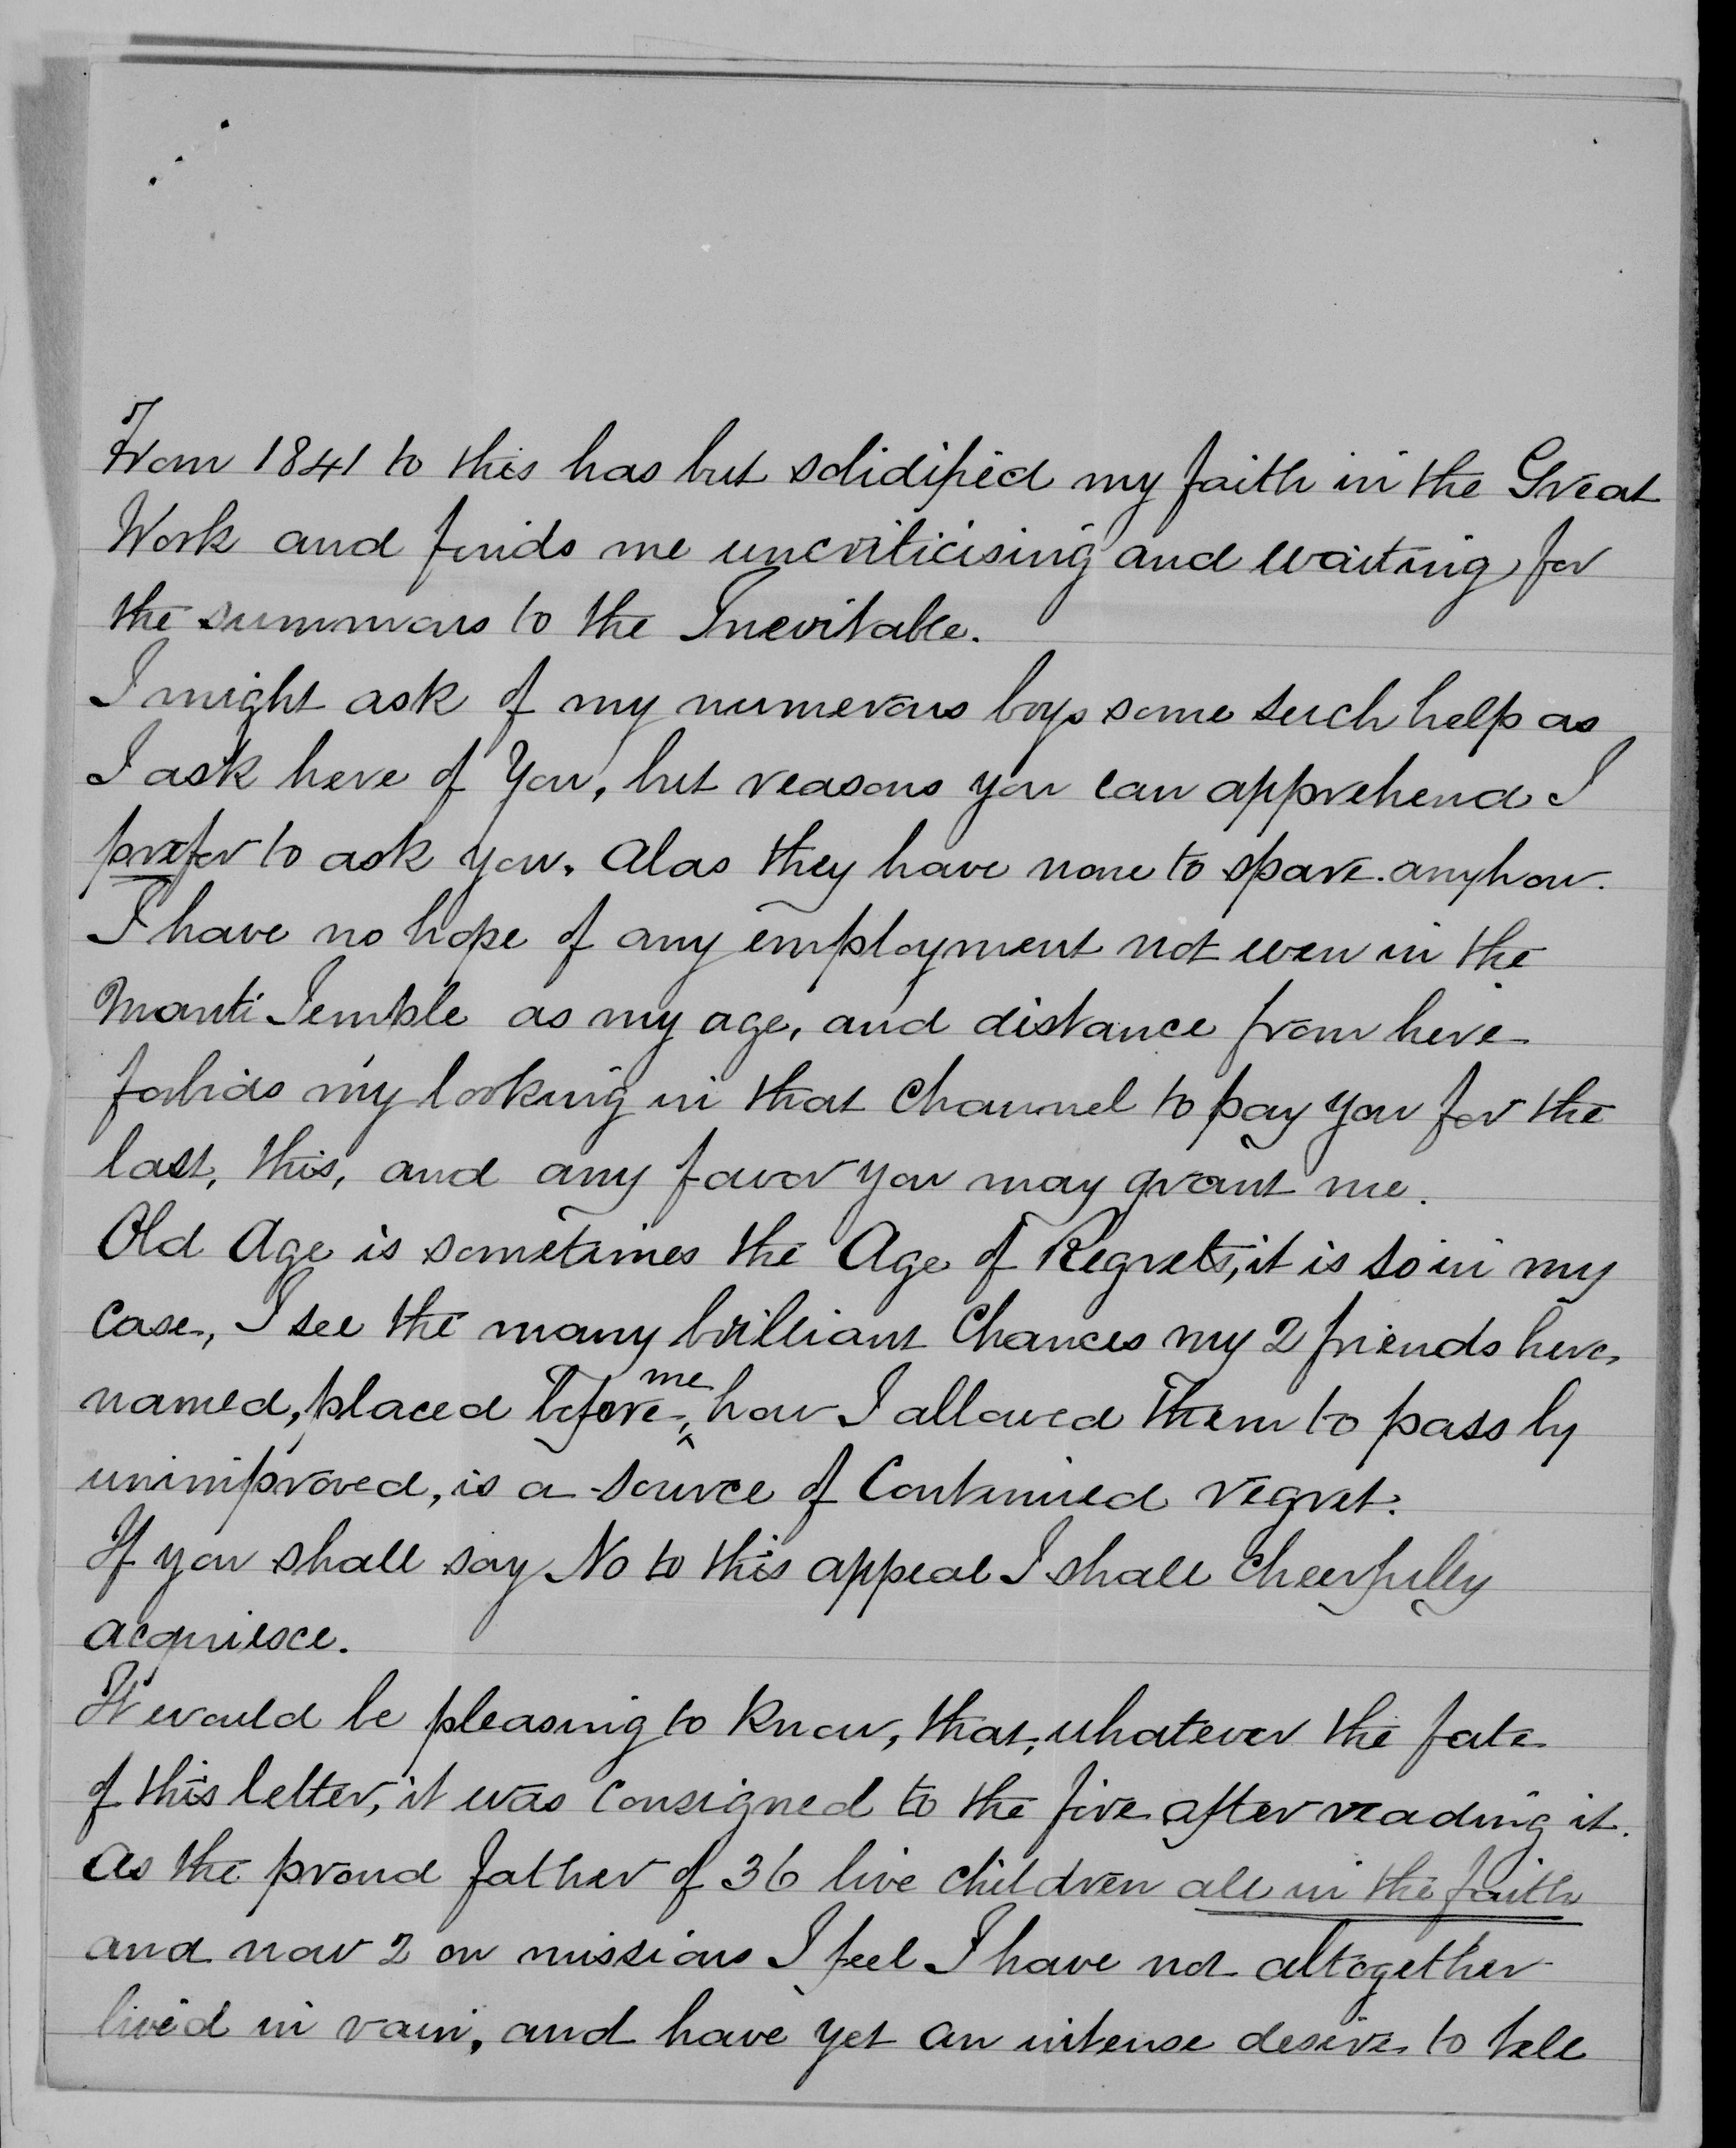 From 1841 to this has but solidified my faith in the Great
Work and finds me uncriticising and waiting for
the summons to the Inevitable.
I might ask of my numerous boys some such help as
I ask here of You, but reasons you can apprehend I
prefer to ask you. Alas they have none to spare anyhow.
I have no hope of any employment not even in the
Manti Temple as my age, and distance from here
forbids my looking in that channel to pay you for the
last, this, and any favor you may grant me.
Old Age is sometimes the Age of Regrets, it is so in my
case, I see the many brilliant Chances my 2 friends here
named, placed before me, how I allowed them to pass by
unimproved, is a source of Continued regret.
If you shall say No to this appeal I shall cheerfully
acquiesce.
It would be pleasing to know, that, whatever the fate
of this letter, it was consigned to the fire after reading it.
As the proud father of 36 live children all in the faith
and now 2 on missions I feel I have not altogether
lived in vain, and have yet an intense desire to tell